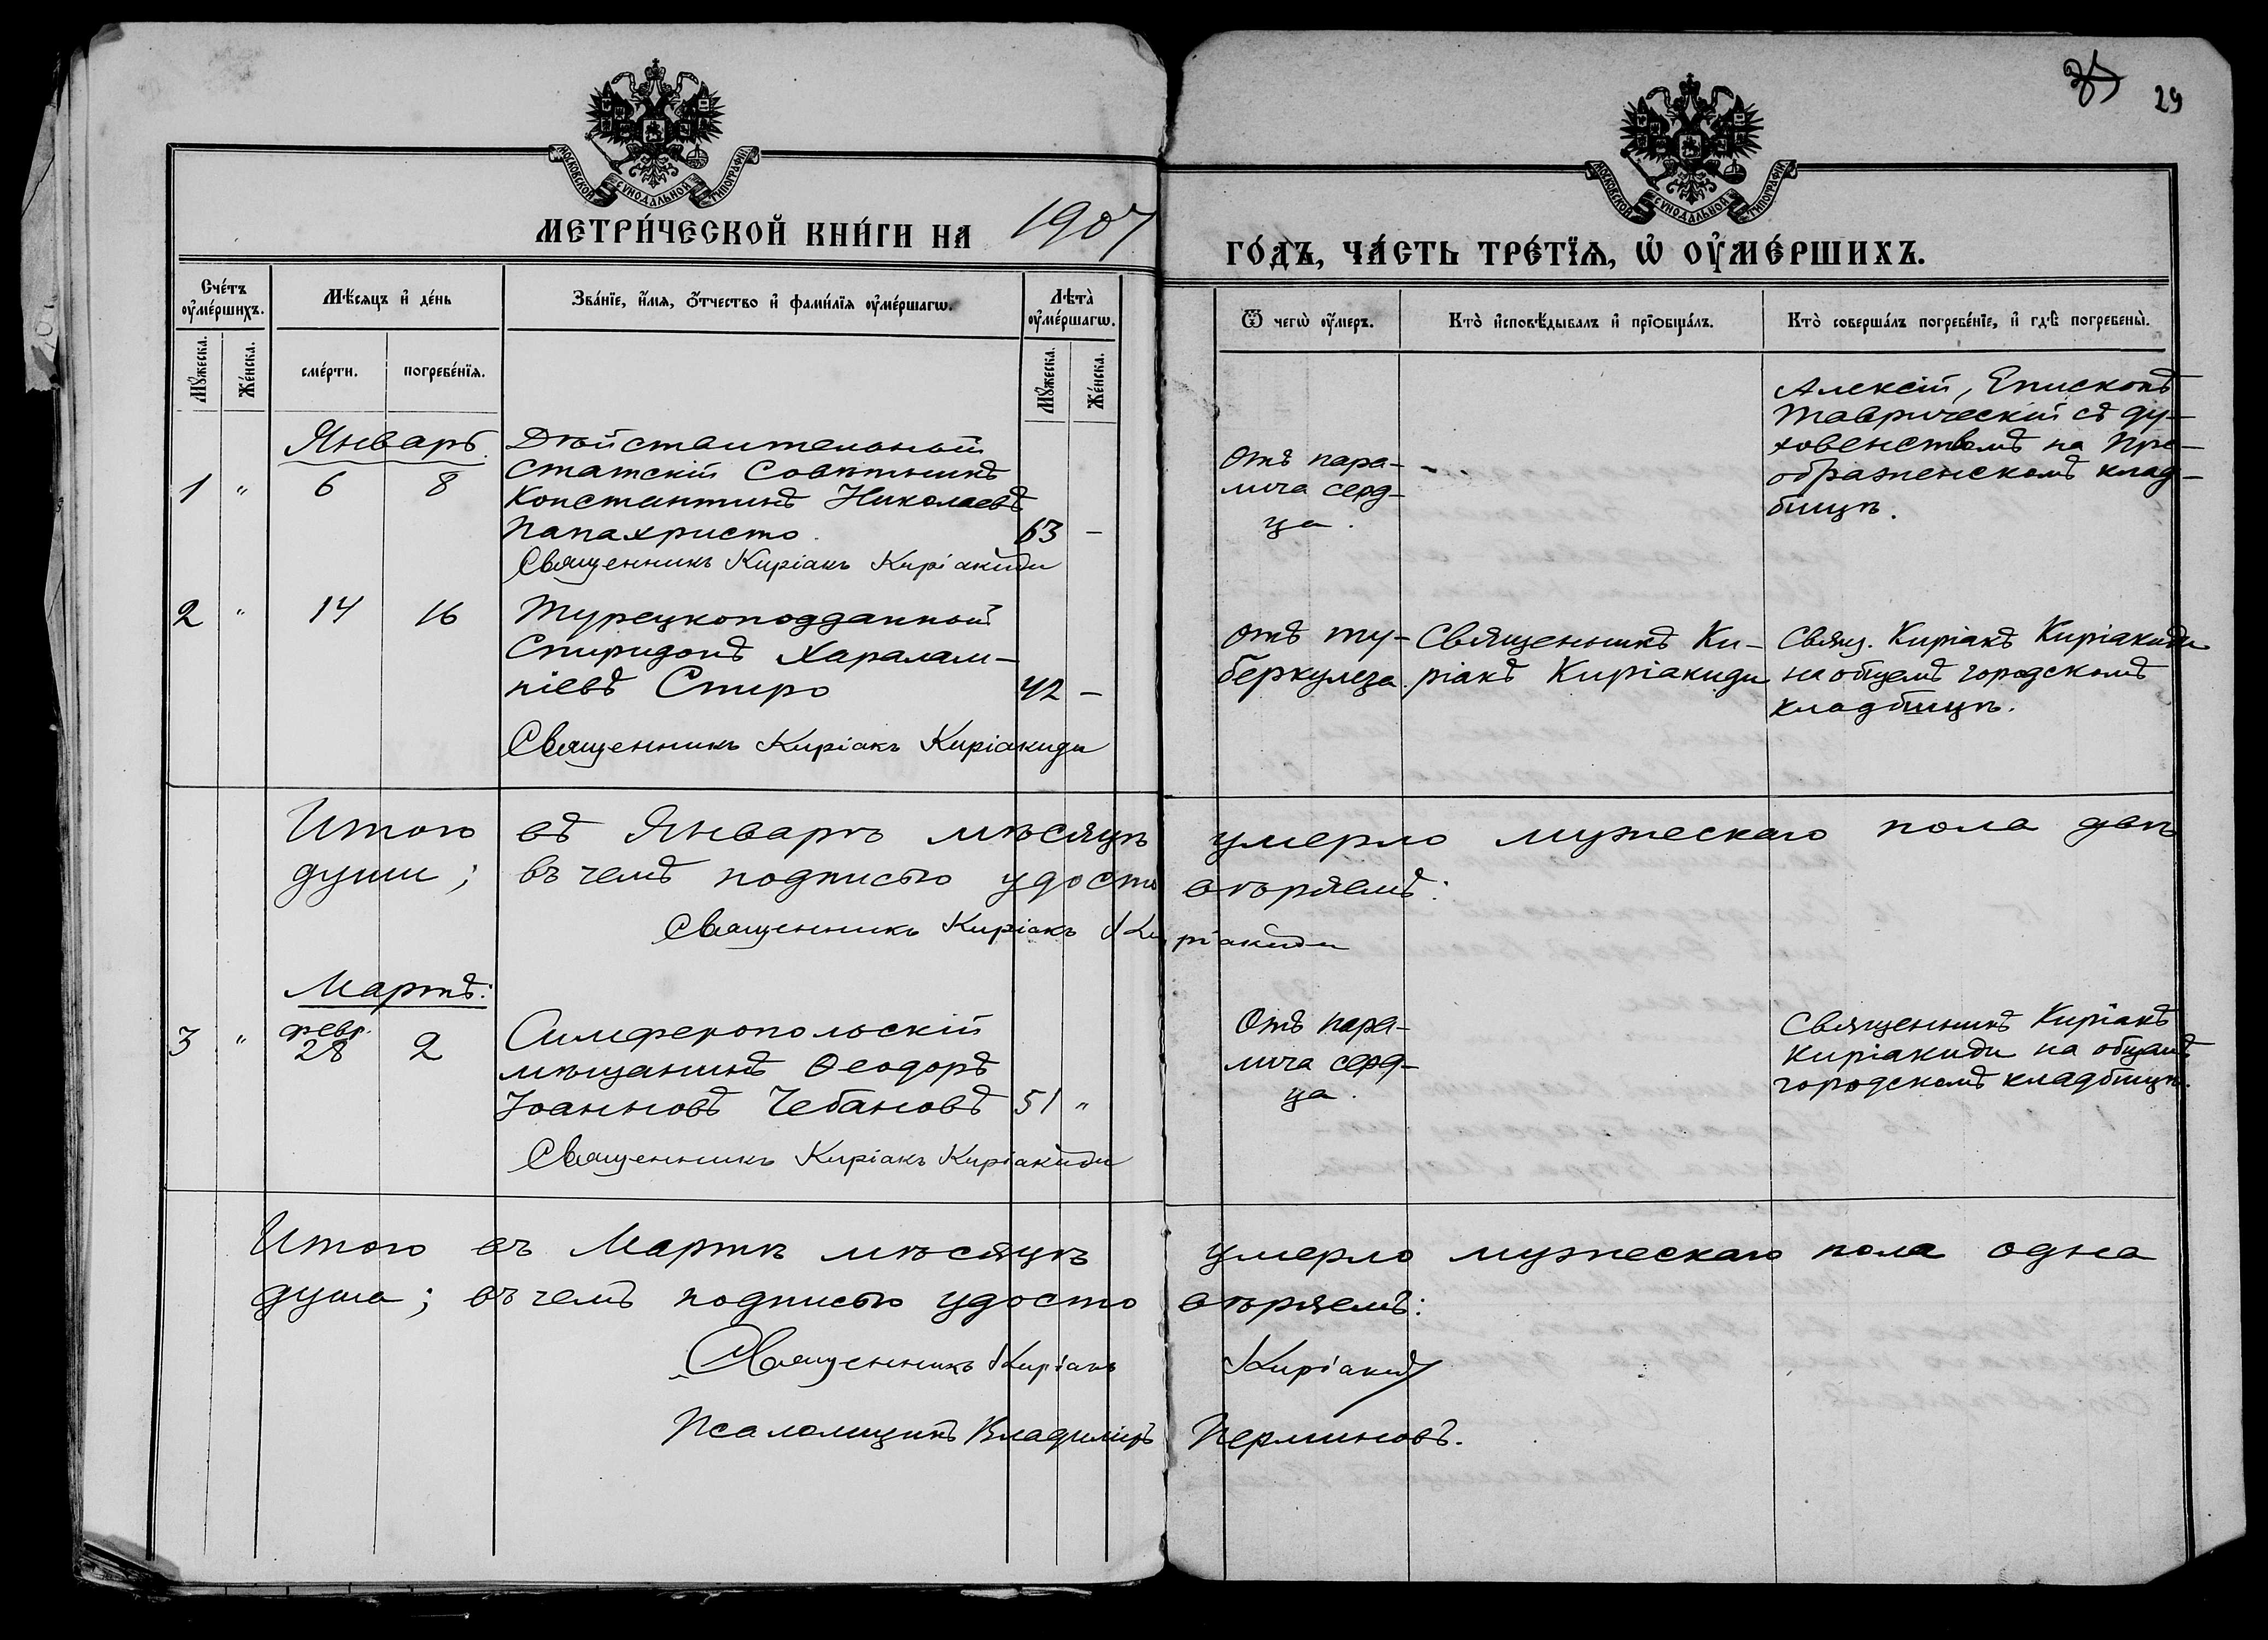 35 29
МОСКОВСКОЙ СѴНОДАЛЬНОЙ ТИПОГРАФІИ
МОСКОВСКОЙ СѴНОДАЛЬНОЙ ТИПОГРАФІИ
МЕТРИ́ЧЕСКОЙ КНИ́ГИ НА 1907
ГО́ДЪ, ЧА́СТЬ ТРЕ́ТЇѦ, Ѡ҆ ОУ҆МЕ́РШИХЪ.
Сче́тъ оу҆ме́ршихъ.
Мѣ́сяцъ и҆ де́нь
Зва́нїе, и҆́мѧ, ѻ҆́тчество и҆ фами́лїѧ оу҆ме́ршагѡ.
Лѣта̀ оу҆ме́ршагѡ.
Ѿ чегѡ̀ оу҆́меръ.
Кто̀ и҆сповѣ́дывалъ и҆ прїѻбща́лъ.
Кто̀ соверша́лъ погребе́нїе, и҆ гдѣ̀ погребены̀.
Мꙋ́жеска.
Же́нска.
сме́рти.
погребе́нїѧ.
Мꙋ́жеска.
Же́нска.
Январь.
1 " 6 8
Дѣйствительный
Статскій Совѣтникъ
Константинъ Николаевъ
Папахристо. 63 –
Священникъ Киріакъ Киріакиди
Отъ пара-
лича серд-
ца.
Алексій, Епископъ
Таврическій съ ду-
ховенствомъ на Пре-
ображенскомъ клад-
бищѣ.
2 " 14 16
Турецкоподданный
Спиридонъ Харалам-
піевъ Спиро 42 –
Священникъ Киріакъ Киріакиди
Отъ ту-
беркулеза
Священникъ Ки-
ріакъ Киріакиди
Свящ. Киріакъ Киріакиди
на общемъ городскомъ
кладбищѣ.
Итого въ Январѣ мѣсяцѣ умерло мужескаго пола двѣ
души; въ чемъ подписью удостовѣряемъ:
Священникъ Киріакъ Киріакиди
Мартъ:
3 " февр. 28 2
Симферопольскій
мѣщанинъ Ѳеодоръ
Іоанновъ Чебановъ 51 "
Священникъ Киріакъ Киріакиди
Отъ пара-
лича серд-
ца.
Священникъ Киріакъ
Киріакиди на общемъ
городскомъ кладбищѣ.
Итого въ Мартѣ мѣсяцѣ умерло мужескаго пола одна
душа; въ чемъ подписью удостовѣряемъ:
Священникъ Киріакъ Киріакиди
Псаломщикъ Владиміръ Перминовъ.